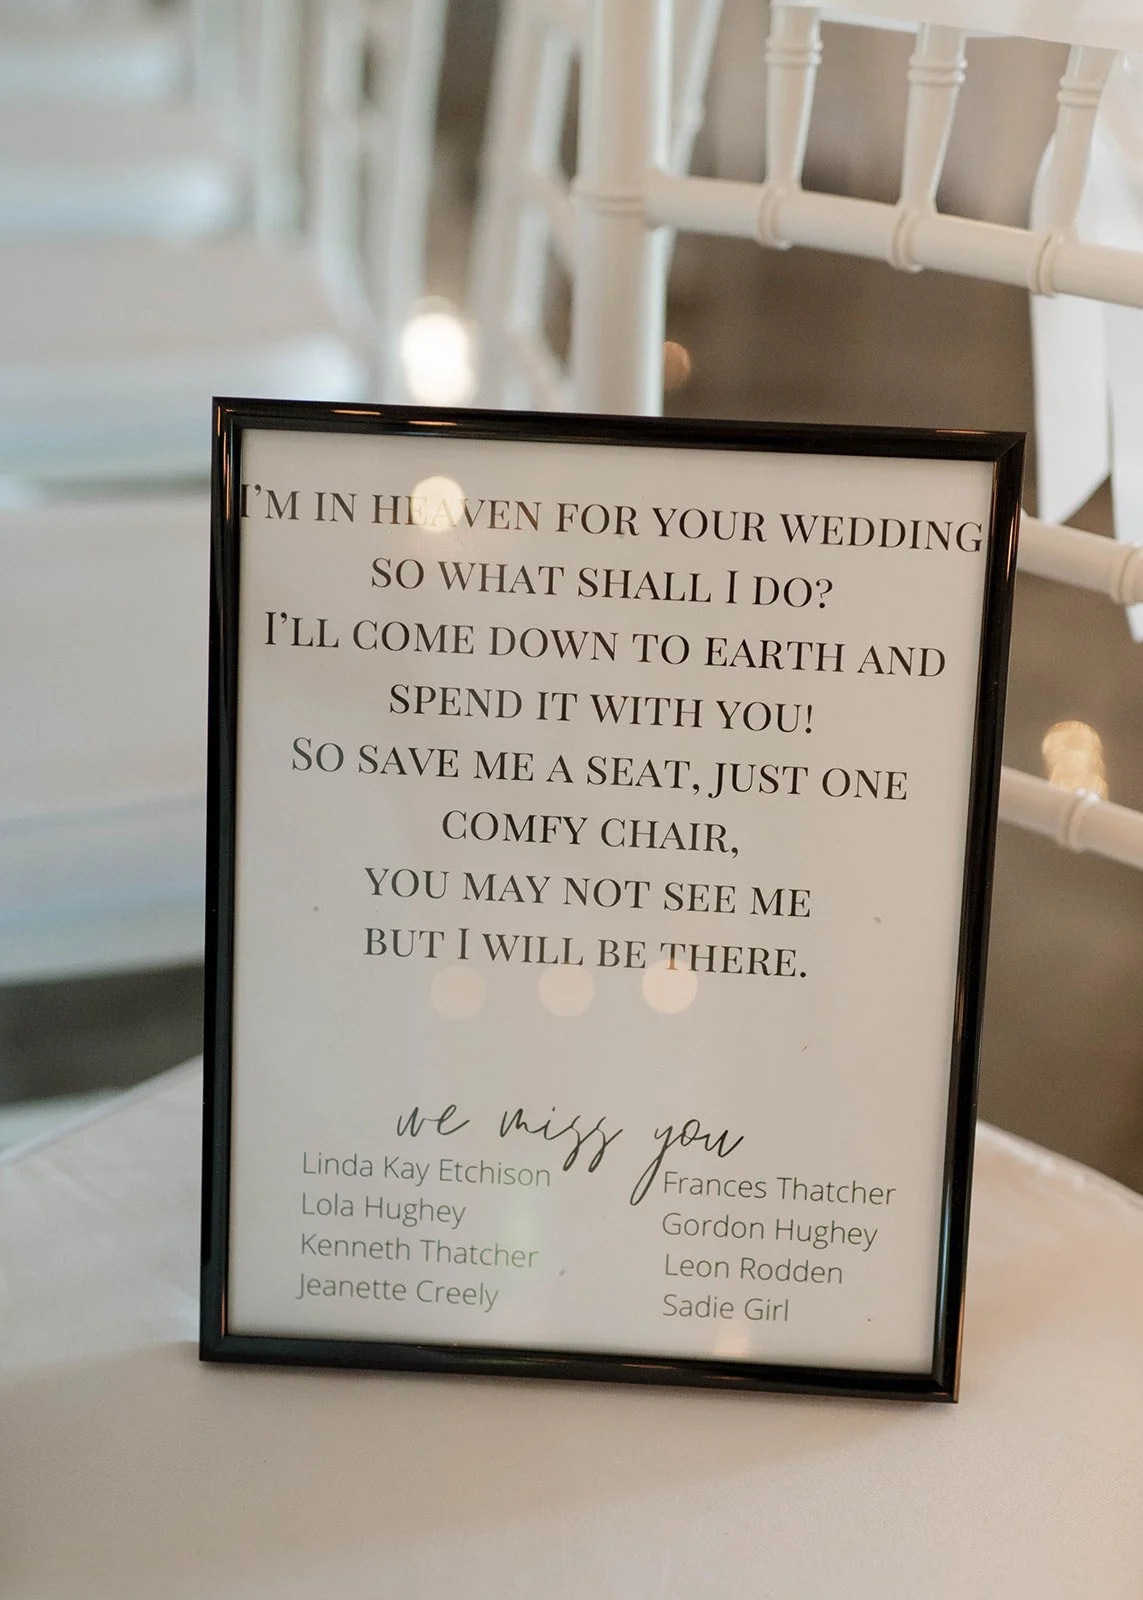 I'M IN HEAVEN FOR YOUR WEDDING
SO WHAT SHALL I DO?
I'LL COME DOWN TO EARTH AND
SPEND IT WITH YOU!
SO SAVE ME A SEAT, JUST ONE
COMFY CHAIR,
YOU MAY NOT SEE ME
BUT I WILL BE THERE.
we miss you
Linda Kay Etchison
Lola Hughey
Kenneth Thatcher
Jeanette Creely
Frances Thatcher
Gordon Hughey
Leon Rodden
Sadie Girl